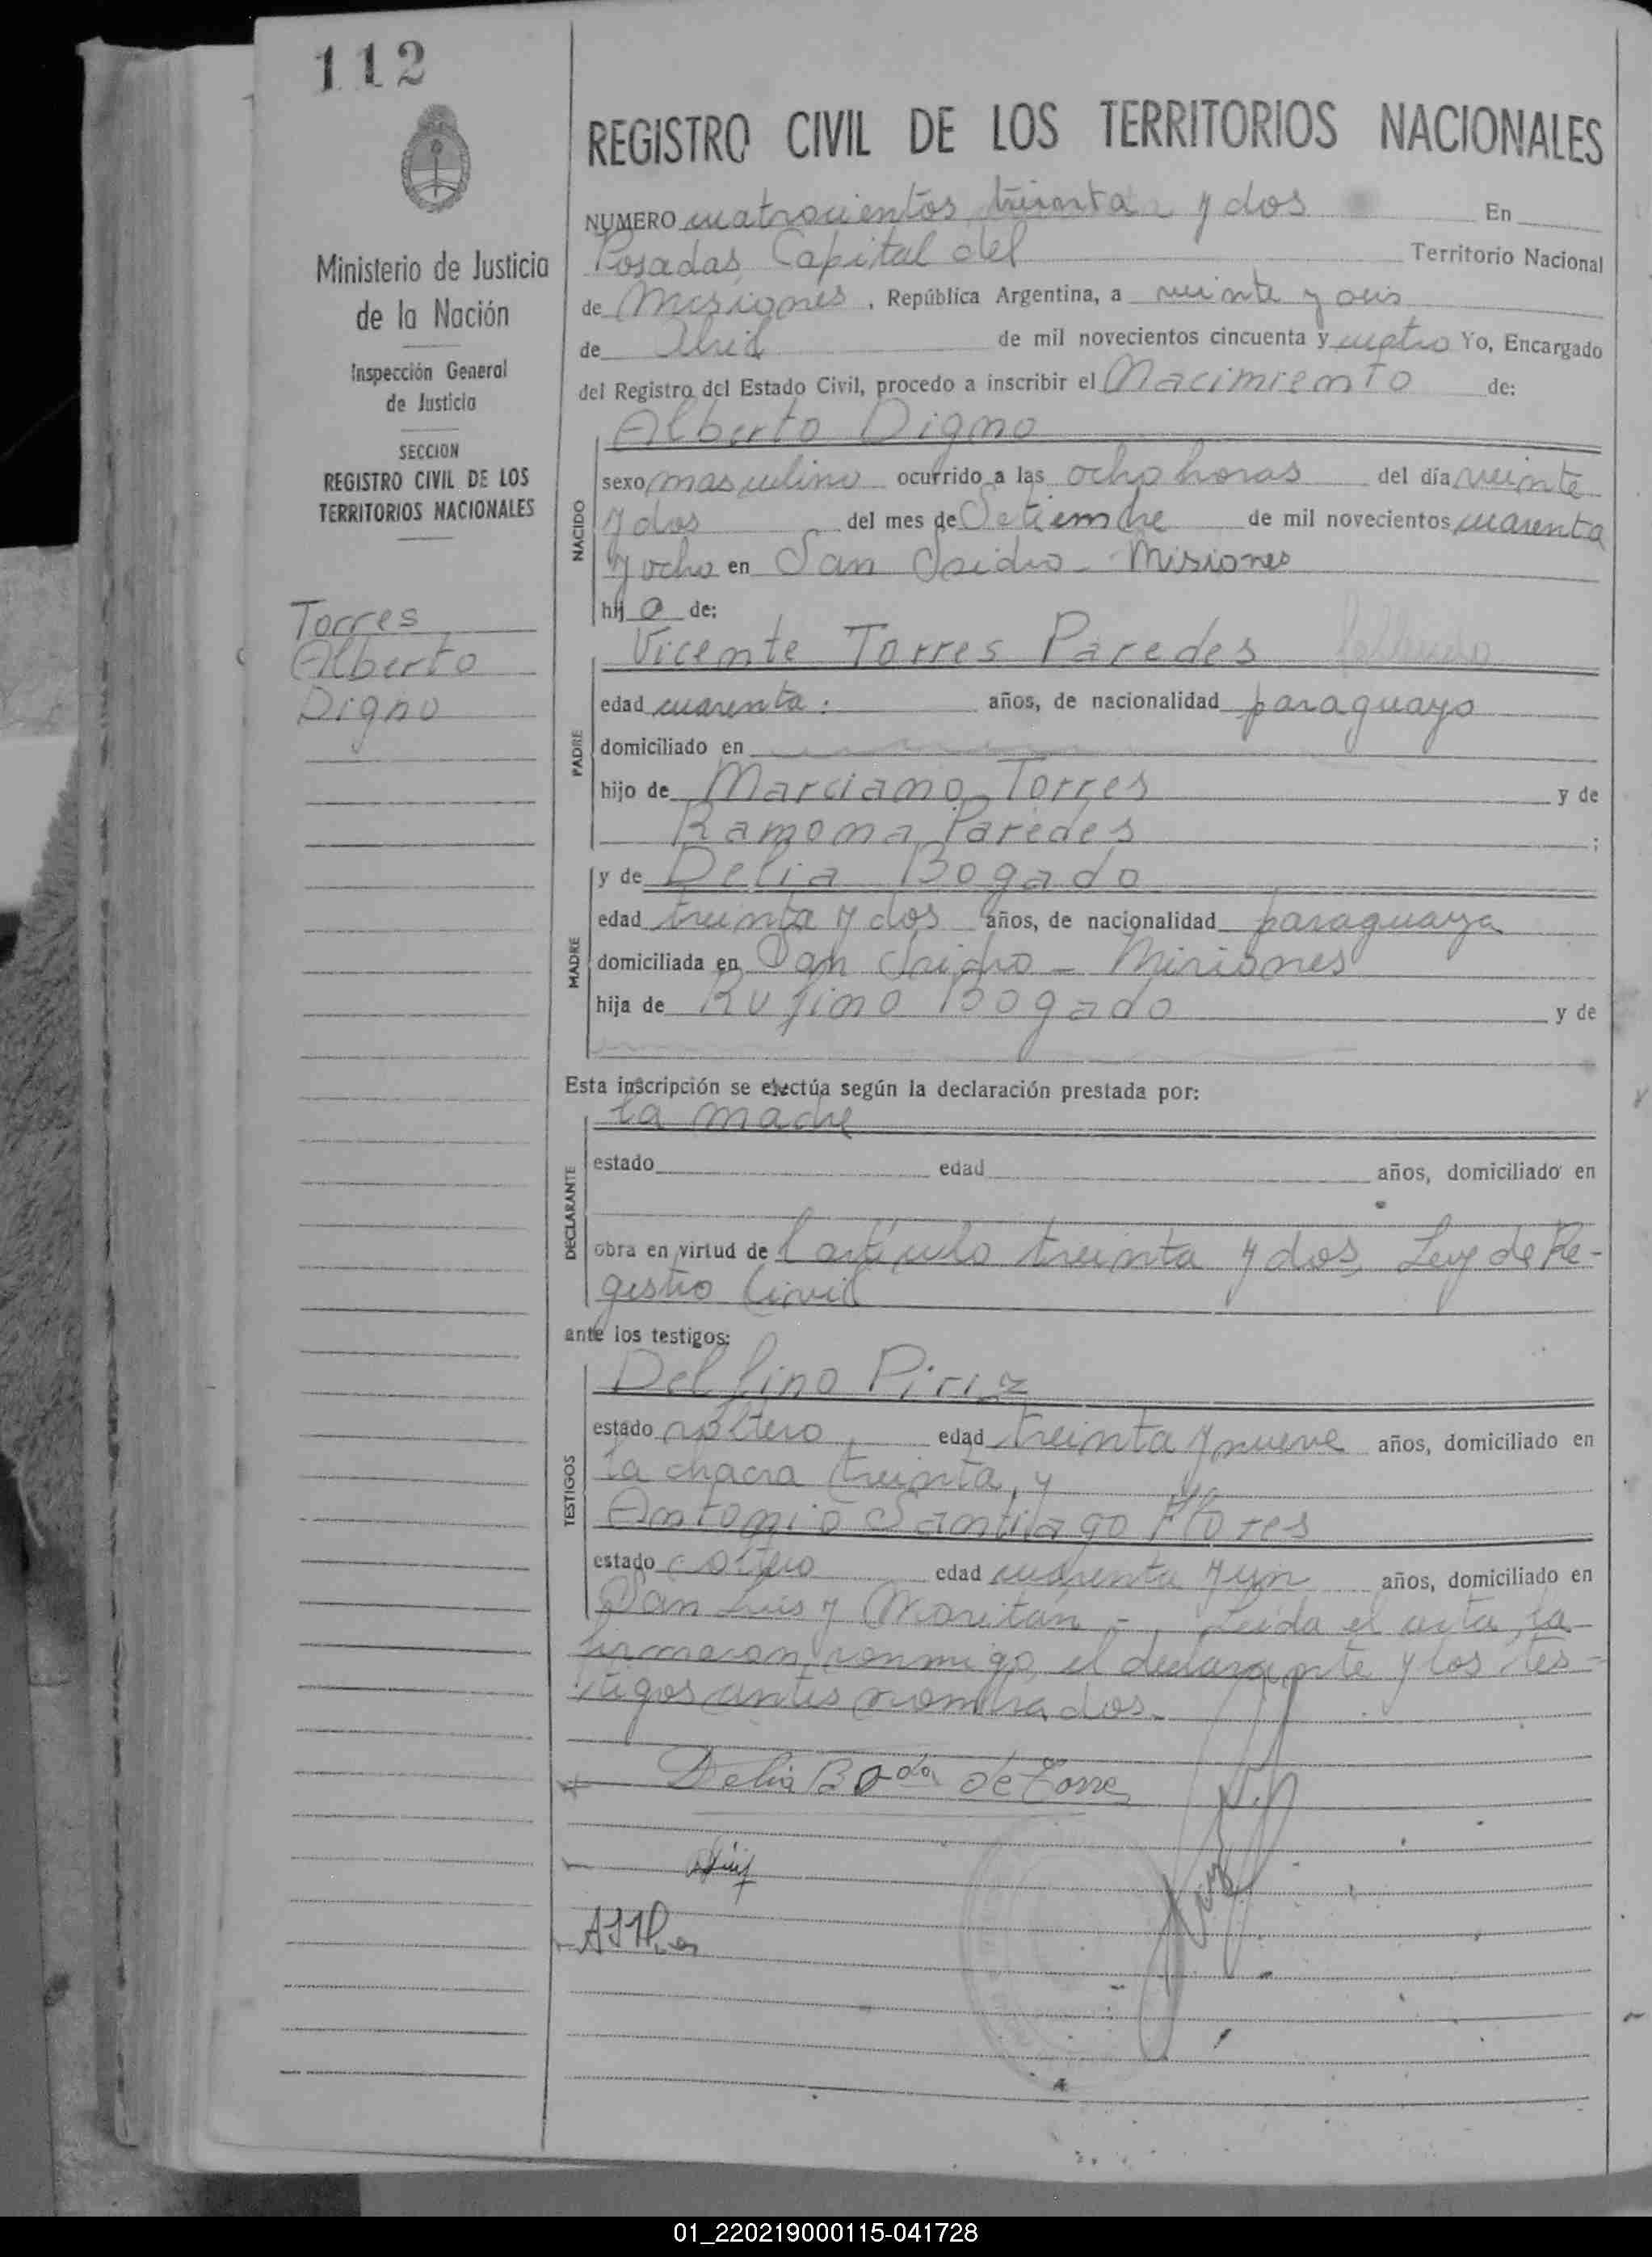 112
REGISTRO CIVIL DE LOS TERRITORIOS NACIONALES
Ministerio de Justicia
de la Nación
Inspección General
de Justicia
SECCION
REGISTRO CIVIL DE LOS
TERRITORIOS NACIONALES
Torres
Alberto
Digno
NUMERO cuatrocientos treinta y dos En
Posadas Capital del Territorio Nacional
de Misiones, República Argentina, a veinte y seis
de Abril de mil novecientos cincuenta y cuatro Yo, Encargado
del Registro del Estado Civil, procedo a inscribir el Nacimiento de:
Alberto Digno
NACIDO
sexo masculino ocurrido a las ocho horas del día veinte
y dos del mes de Setiembre de mil novecientos cuarenta
y ocho en San Isidro - Misiones
hijo de:
PADRE
Vicente Torres Paredes
edad cuarenta años, de nacionalidad paraguayo
domiciliado en
hijo de Marciano Torres y de
Ramona Paredes ;
MADRE
y de Delia Bogado
edad treinta y dos años, de nacionalidad paraguaya
domiciliada en San Isidro - Misiones
hija de Rufino Bogado y de
Esta inscripción se efectúa según la declaración prestada por:
DECLARANTE
la madre
estado edad años, domiciliado en
obra en virtud de l artículo treinta y dos, Ley de Re-
gistro Civil
ante los testigos:
TESTIGOS
Delfino Piriz
estado soltero, edad treinta y nueve años, domiciliado en
la chacra treinta, y
Antonio Santiago Flores
estado soltero edad cuarenta y un años, domiciliado en
San Luis y Moritán - Leida el acta, la
firmaron conmigo, el declarante y los tes-
tigos antes nombrados.
Delia B de Torre
01_220219000115-041728